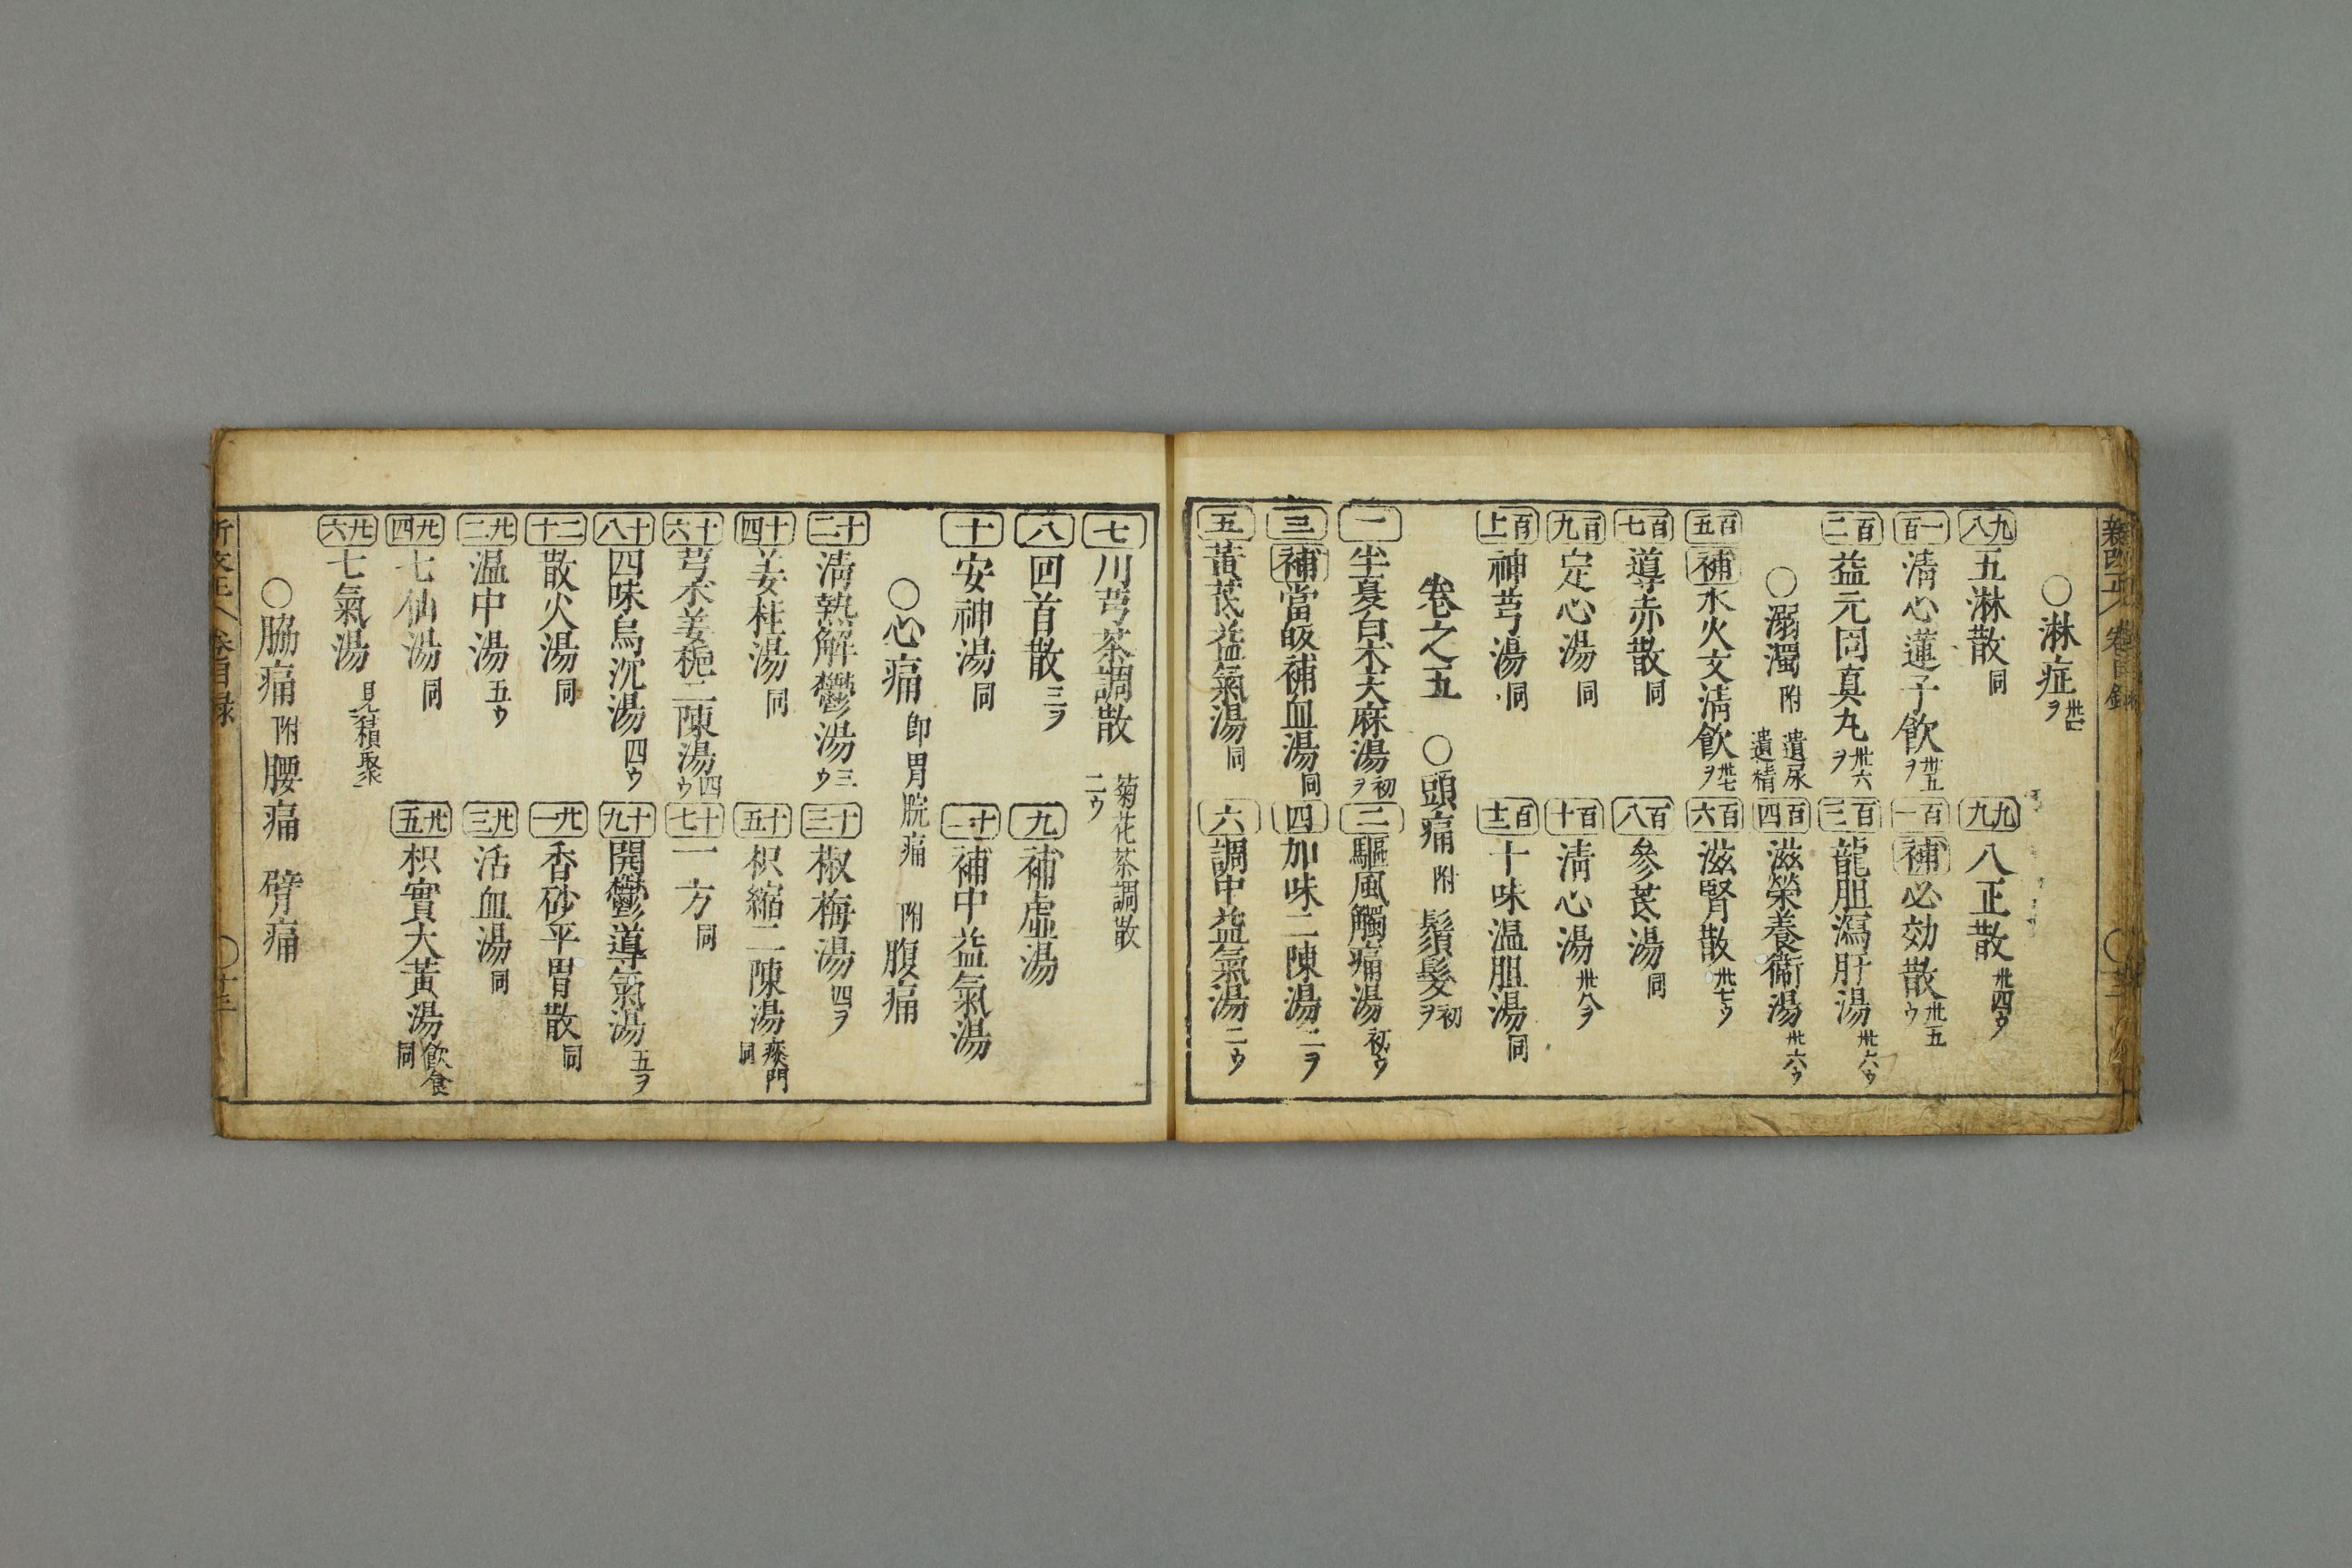 ○淋症
九八 五淋散 同 九九 八正散 卅四ウ
一百 清心蓮子飲 卅五ヲ 百一 補必効散 卅五ウ
百二 益元固真丸 卅六ヲ 百三 龍胆瀉肝湯 卅六ウ
○溺濁 附 遺尿 遺精 百四 滋榮養衞湯 卅六ウ
百五 補水火文清飲 卅七ヲ 百六 滋腎散 卅七ウ
百七 導赤散 同 百八 參芪湯 同
百九 定心湯 同 百十 清心湯
百 神芎湯 同 百 十味温胆湯 同
卷之五 ○頭痛 附 鬚髮 初ヲ
一 半夏白朮天麻湯 初ヲ 二 驅風觸痛湯 初ウ
三 補當皈補血湯 同 四 加味二陳湯 二ヲ
五 黃芪益氣湯 同 六 調中益氣湯 二ウ
七 川芎茶調散 菊花茶調散 二ウ
八 回首散 三ヲ 九 補虛湯
十 安神湯 同 十一 補中益氣湯
○心痛 即胃脘痛 附 腹痛
十二 清熱解鬱湯 三ウ 十三 椒梅湯 四ヲ
十四 姜桂湯 同 十五 枳縮二陳湯 痰門 同
十六 芎朮姜梔二陳湯 四ウ 十七 一方 同
十八 四味烏沉湯 四ウ 十九 開鬱導氣湯 五ヲ
二十 散火湯 同 廿一 香砂平胃散 同
廿二 温中湯 五ウ 廿三 活血湯 同
廿四 七仙湯 同 廿五 枳實大黃湯 飲食 同
廿六 七氣湯 見積聚
○脇痛 附 腰痛 臂痛